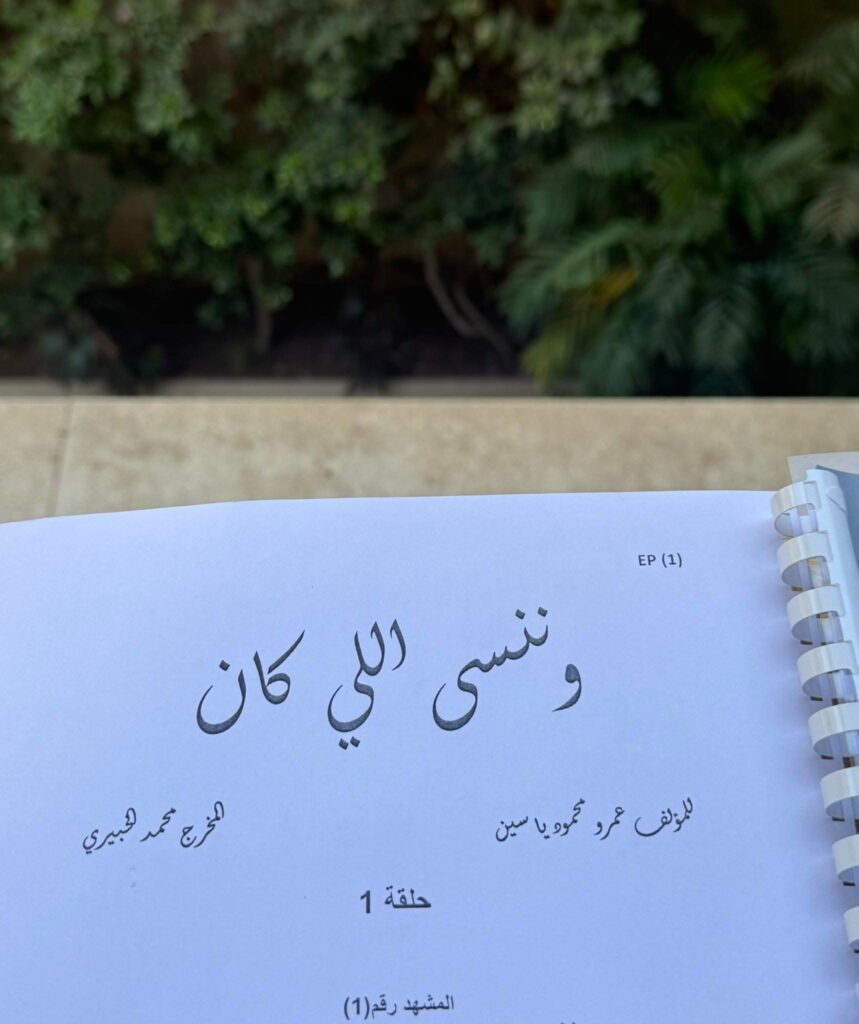 EP (1)
وننسى اللي كان
للمؤلف عمرو محمود ياسين
المخرج محمد الخبيري
حلقة 1
المشهد رقم(1)